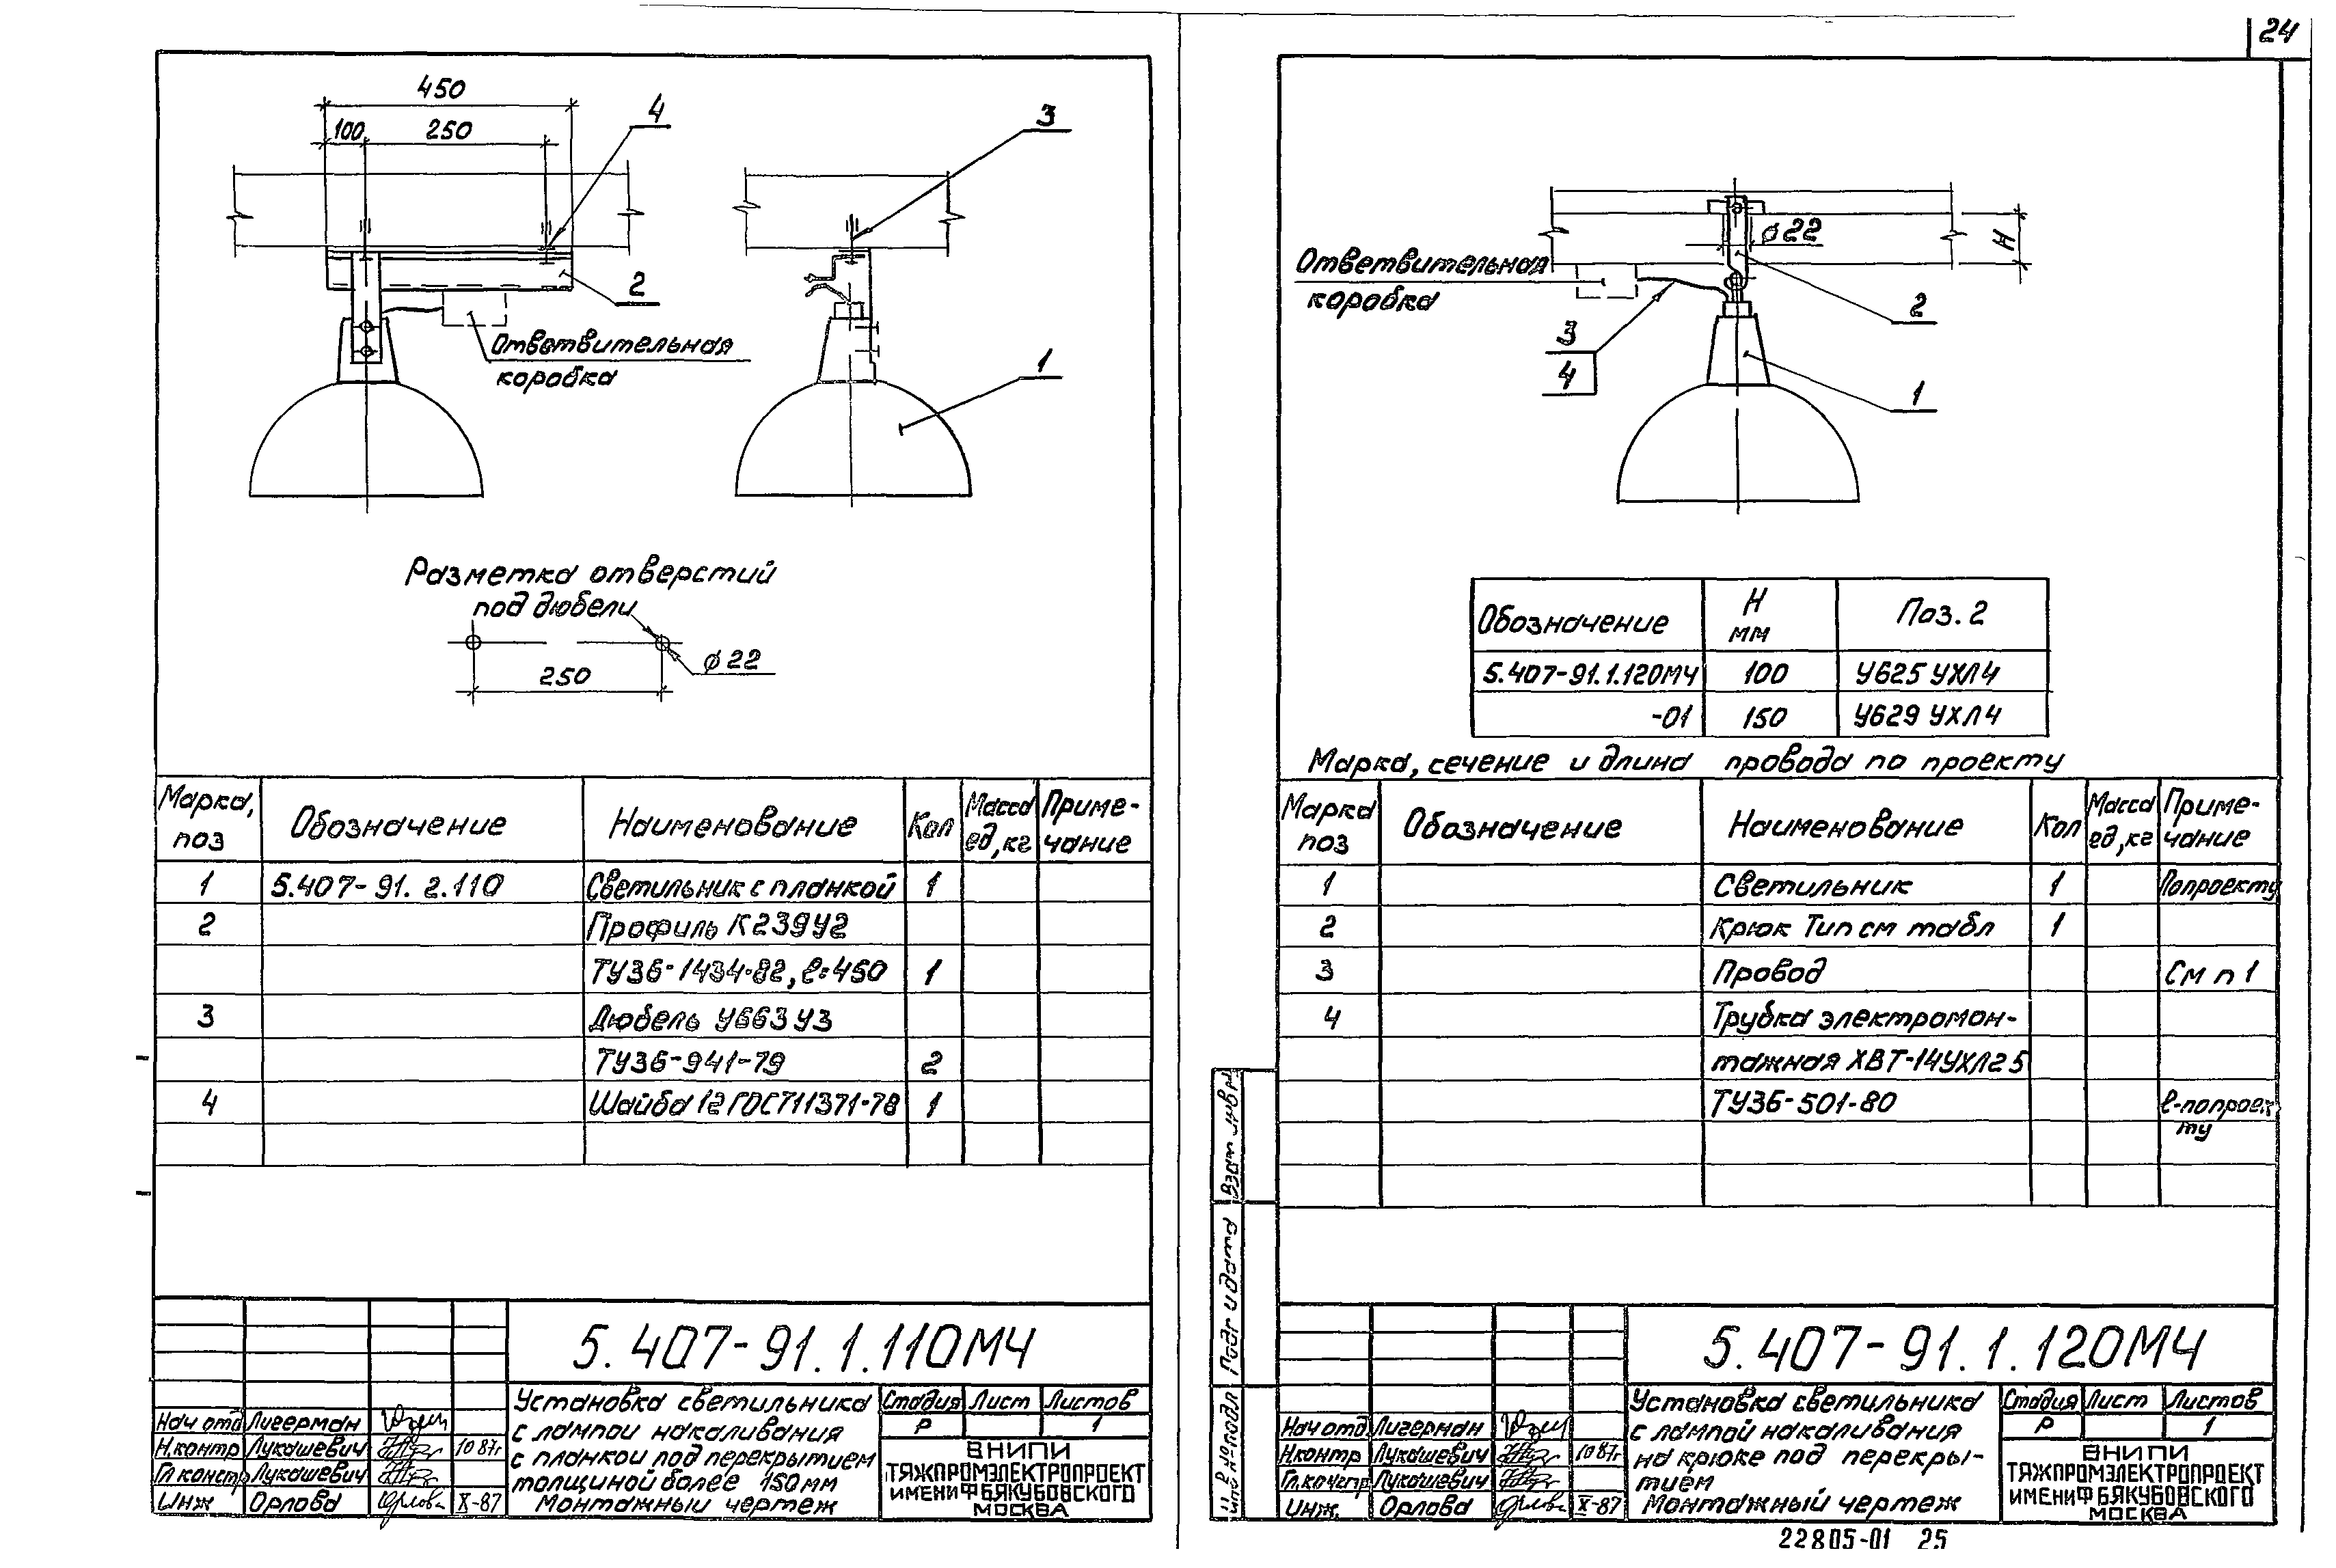 24
450
100
250
4
3
2
Ответвительная
коробка
1
Разметка отверстий
под дюбели
ø22
250
Марка, поз
Обозначение
Наименование
Кол
Масса ед, кг
Приме-чание
1 5.407-91.2.110 Светильник с планкой 1
2 Профиль К239У2
ТУ36-1434-82, ℓ=450 1
3 Дюбель У663У3
ТУ36-941-79 2
4 Шайба 12 ГОСТ11371-78 1
5.407-91.1.110МЧ
Установка светильника
с лампой накаливания
с планкой под перекрытием
толщиной более 150мм
Монтажный чертеж
Стадия Лист Листов
Р 1
ВНИПИ
ТЯЖПРОМЭЛЕКТРОПРОЕКТ
ИМЕНИ Ф БЯКУБОВСКОГО
МОСКВА
Нач отд Лигерман
Н.контр Лукашевич 10 87г
Гл констр Лукашевич
Инж Орлова X-87
ø22
H
Ответвительная
коробка
3
4
2
1
Обозначение H мм Поз. 2
5.407-91.1.120МЧ 100 У625 УХЛ4
-01 150 У629 УХЛ4
Марка, сечение и длина провода по проекту
Марка поз
Обозначение
Наименование
Кол
Масса ед, кг
Приме-чание
1 Светильник 1 По проекту
2 Крюк Тип см табл 1
3 Провод См п 1
4 Трубка электромон-
тажная ХВТ-14УХЛ2 5
ТУ36-501-80 ℓ-по проек
ту
Взам инв №
Подп и дата
Инв № подл
5.407-91.1.120МЧ
Установка светильника
с лампой накаливания
на крюке под перекры-
тием
Монтажный чертеж
Стадия Лист Листов
Р 1
ВНИПИ
ТЯЖПРОМЭЛЕКТРОПРОЕКТ
ИМЕНИ Ф БЯКУБОВСКОГО
МОСКВА
Нач отд Лигерман
Н.контр Лукашевич 10 87г
Гл.констр Лукашевич
Инж. Орлова X-87
22805-01 25